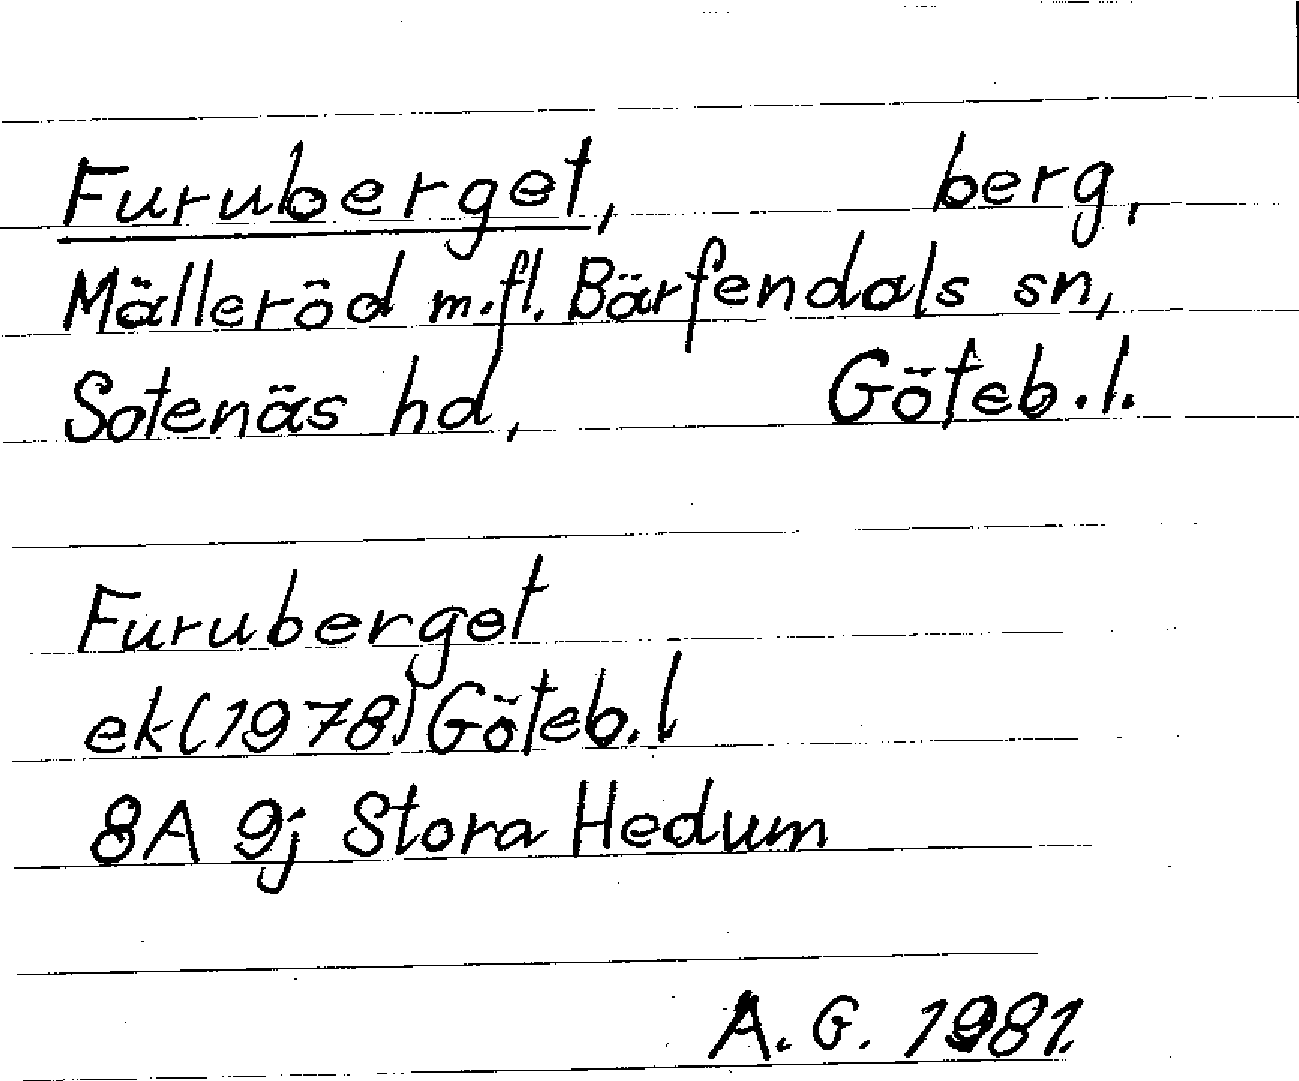 Furuberget, berg,
Mälleröd m.fl. Bärfendals sn,
Sotenäs hd, Göteb.l.
Furuberget
ek(1978) Göteb.l
8A 9j Stora Hedum
A. G. 1981.